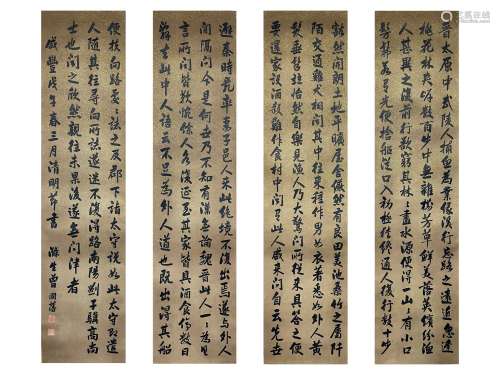 晋太原中武陵人捕魚為業緣溪行忘路之遠近忽逢
桃花林夾岸數百步中無雜樹芳草鮮美落英缤纷漁
人甚異之復前行欲窮其林林盡水源便得一山山有小口
髣髴若有光便捨船從口入初極狹纔通人復行數十步
豁然開朗土地平曠屋舍儼然有良田美池桑竹之屬阡
陌交通雞犬相聞其中往來種作男女衣著悉如外人黃
髮垂髫並怡然自樂見漁人乃大驚問所從來具答之便
要還家設酒殺雞作食村中聞有此人咸來問自云先世
避秦時亂率妻子邑人來此絕境不復出焉遂與外人
間隔問今是何世乃不知有漢無論魏晉此人一一為具
言所聞皆歎惋餘人各復延至其家皆出酒食停數日
辭去此中人語云不足為外人道也既出得其船
便扶向路處處誌之及郡下詣太守說如此太守即遣
人隨其往尋向所誌遂迷不復得路南陽劉子驥高尚
士也聞之欣然親往未果後遂無問津者
咸豐戊午春三月清明節書 滌生曾國藩